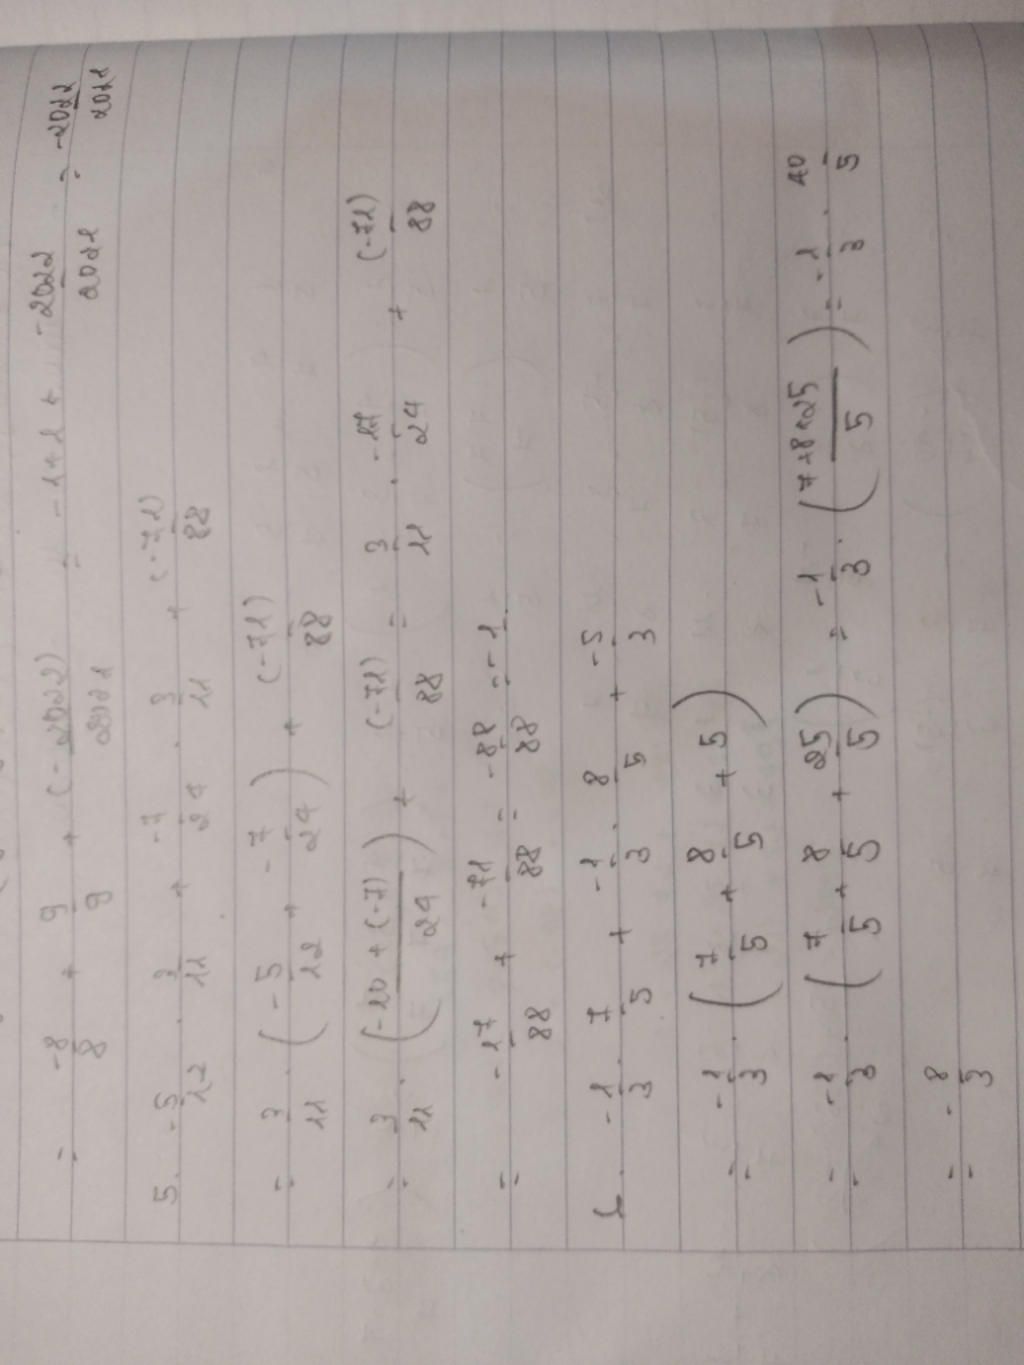 = -8/8 + 9/9 + (-2022)/2021 = -1+1 + -2022/2021 = -2022/2021
5. -5/12 . 3/11 + -7/24 . 3/11 + (-71)/88
= 3/11 . (-5/12 + -7/24) + (-71)/88
= 3/11 . (-10 + (-7)/24) + (-71)/88 = 3/11 . -17/24 + (-71)/88
= -17/88 + -71/88 = -88/88 = -1
6. -1/3 . 7/5 + -1/3 . 8/5 + -5/3
= -1/3 . (7/5 + 8/5 + 5)
= -1/3 . (7/5 + 8/5 + 25/5) = -1/3 . (7+8+25/5) = -1/3 . 40/5
= -8/3